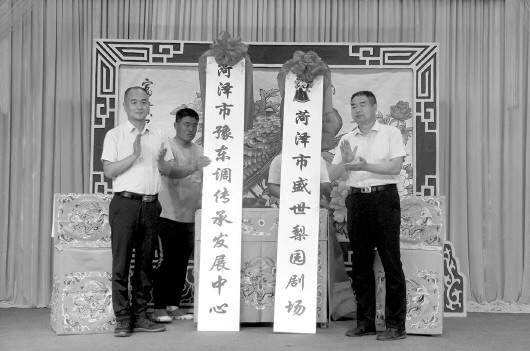 菏泽市豫东调传承发展中心
菏泽市盛世梨园剧场